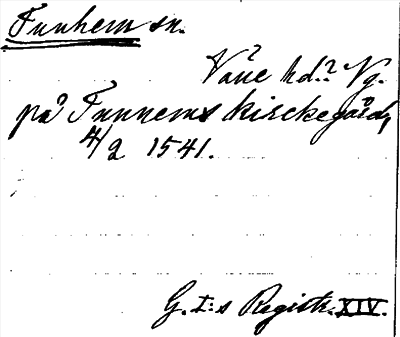 Tunhem sn.
Väne hd.? Vg.
på Tunnems kirckegård,
4/2 1541.
G. I:s Registr. XIV.